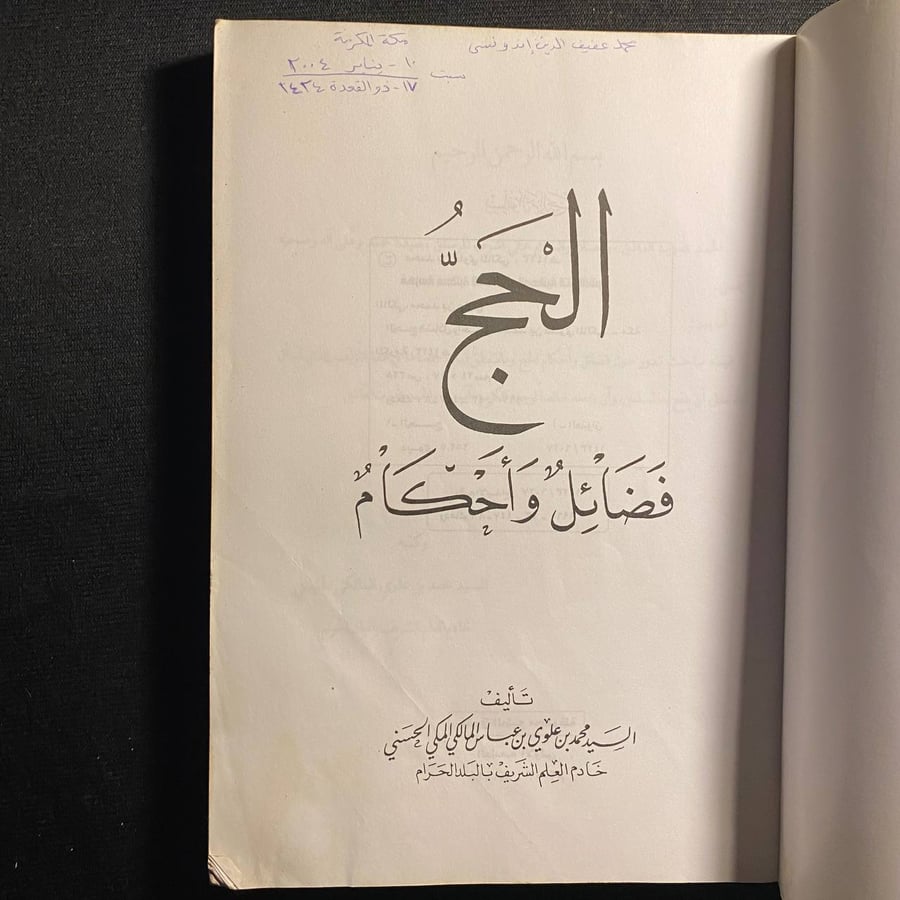 محمد عفيف الدين إندونسى
مكة المكرمة
سبت ١٠ - يناير ٢٠٠٤
١٧ - ذو القعدة ١٤٢٤
الْحَجُّ
فَضَائِلُ وَأَحْكَامٌ
تَأليفْ
السيد محمد بن علوي بن عباس المالكي المكي الحسني
خَادم العِلم الشريف بالبلد الحَرام